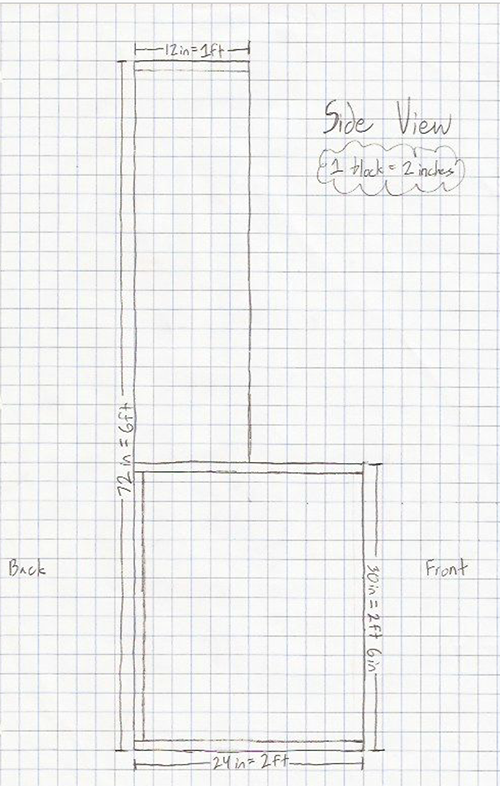 12in=1ft
Side View
1 block = 2 inches
72 in = 6ft
Back
Front
30in = 2ft 6in
24in=2ft